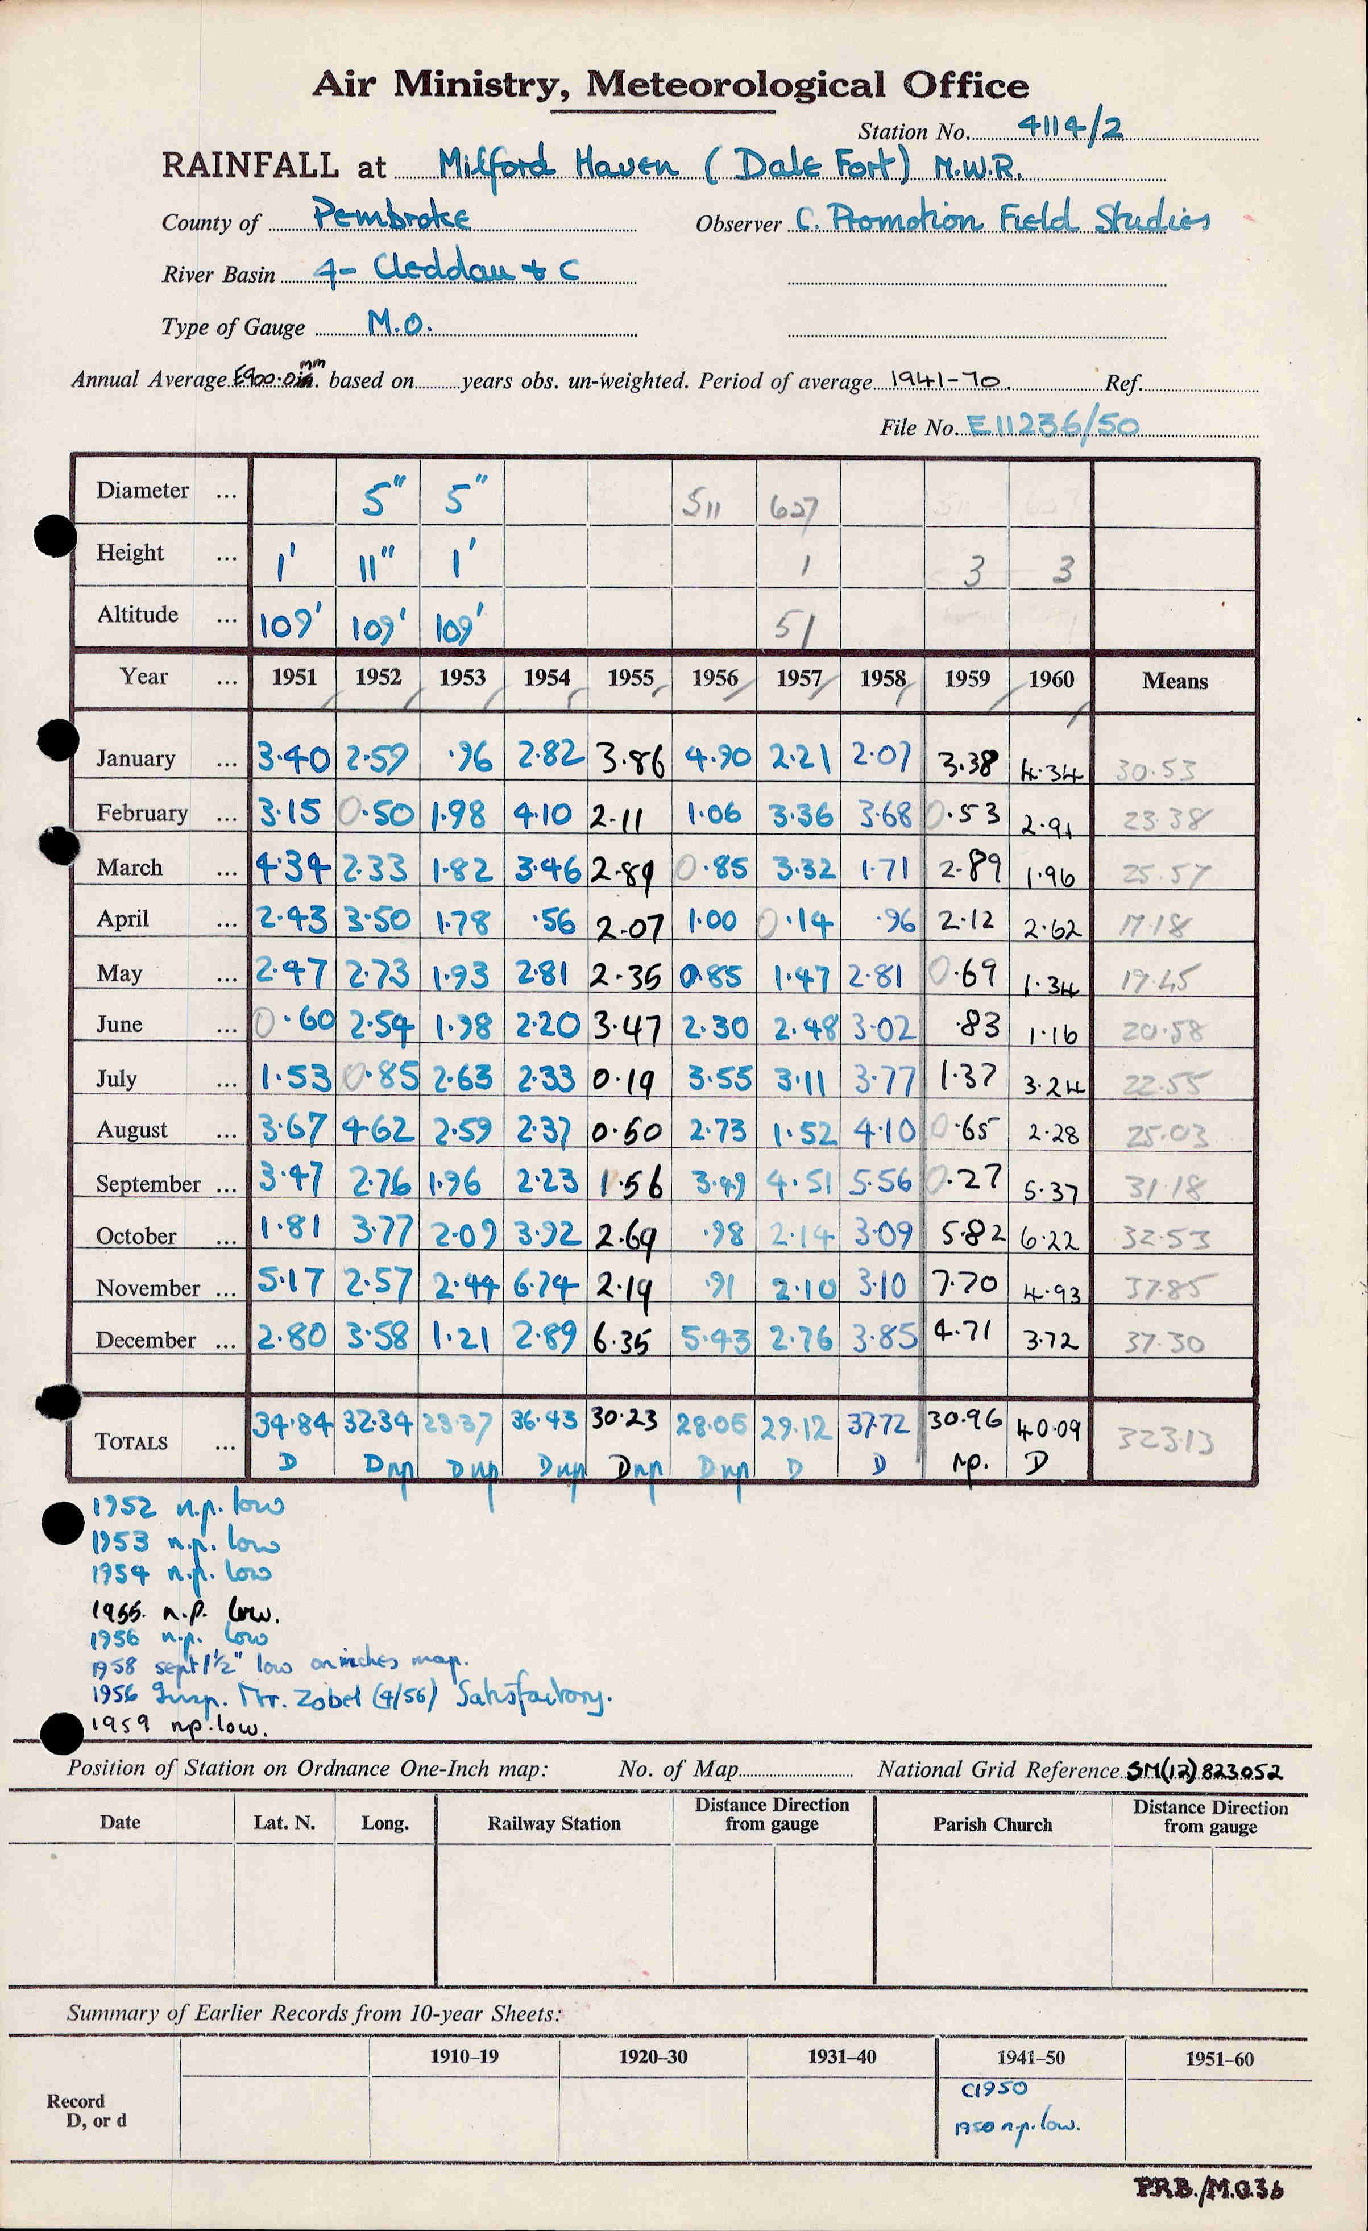 Air Ministry, Meteorological Office
Station No. 4114/2
RAINFALL at Milford Haven (Dale Fort) N.W.R.
County of Pembroke Observer C. Promotion Field Studies
River Basin 4- Cleddau & C
Type of Gauge M.O.
Annual Average E900.0 mm. based on years obs. un-weighted. Period of average 1941-70 Ref.
File No. E11236/50
Diameter ... 5" 5" 511 627
Height ... 1' 11" 1' 1 3 3
Altitude ... 109' 109' 109' 51
Year ... 1951 1952 1953 1954 1955 1956 1957 1958 1959 1960 Means
January ... 3.40 2.59 .96 2.82 3.86 4.90 2.21 2.07 3.38 4.34 30.53
February ... 3.15 0.50 1.98 4.10 2.11 1.06 3.36 3.68 0.53 2.91 23.38
March ... 4.34 2.33 1.82 3.46 2.89 0.85 3.32 1.71 2.89 1.96 25.57
April ... 2.43 3.50 1.78 .56 2.07 1.00 0.14 .96 2.12 2.62 17.18
May ... 2.47 2.73 1.93 2.81 2.35 0.85 1.47 2.81 0.69 1.34 19.45
June ... 0.60 2.54 1.98 2.20 3.47 2.30 2.48 3.02 .83 1.16 20.58
July ... 1.53 0.85 2.63 2.33 0.19 3.55 3.11 3.77 1.37 3.24 22.55
August ... 3.67 4.62 2.59 2.37 0.50 2.73 1.52 4.10 0.65 2.28 25.03
September ... 3.47 2.76 1.96 2.23 1.56 3.49 4.51 5.56 0.27 5.37 31.18
October ... 1.81 3.77 2.09 3.92 2.69 .98 2.14 3.09 5.82 6.22 32.53
November ... 5.17 2.57 2.44 6.74 2.19 .91 2.10 3.10 7.70 4.93 37.85
December ... 2.80 3.58 1.21 2.89 6.35 5.43 2.76 3.85 4.71 3.72 37.30
TOTALS ... 34.84 32.34 23.37 36.43 30.23 28.05 29.12 37.72 30.96 40.09 323.13
D Dnp Dnp Dnp Dnp Dnp D D np. D
1952 n.p. low
1953 n.p. low
1954 n.p. low
1955. n.p. low.
1956 n.p. low
1958 sept 1½" low on inches map.
1956 Insp. Mr. Zobel (4/56) Satisfactory.
1959 np.low.
Position of Station on Ordnance One-Inch map: No. of Map National Grid Reference SM(12)823052
Date Lat. N. Long. Railway Station Distance Direction from gauge Parish Church Distance Direction from gauge
Summary of Earlier Records from 10-year Sheets:
1910–19 1920–30 1931–40 1941–50 1951–60
Record D, or d C1950
1950 n.p. low.
P.R.B./M.O.36